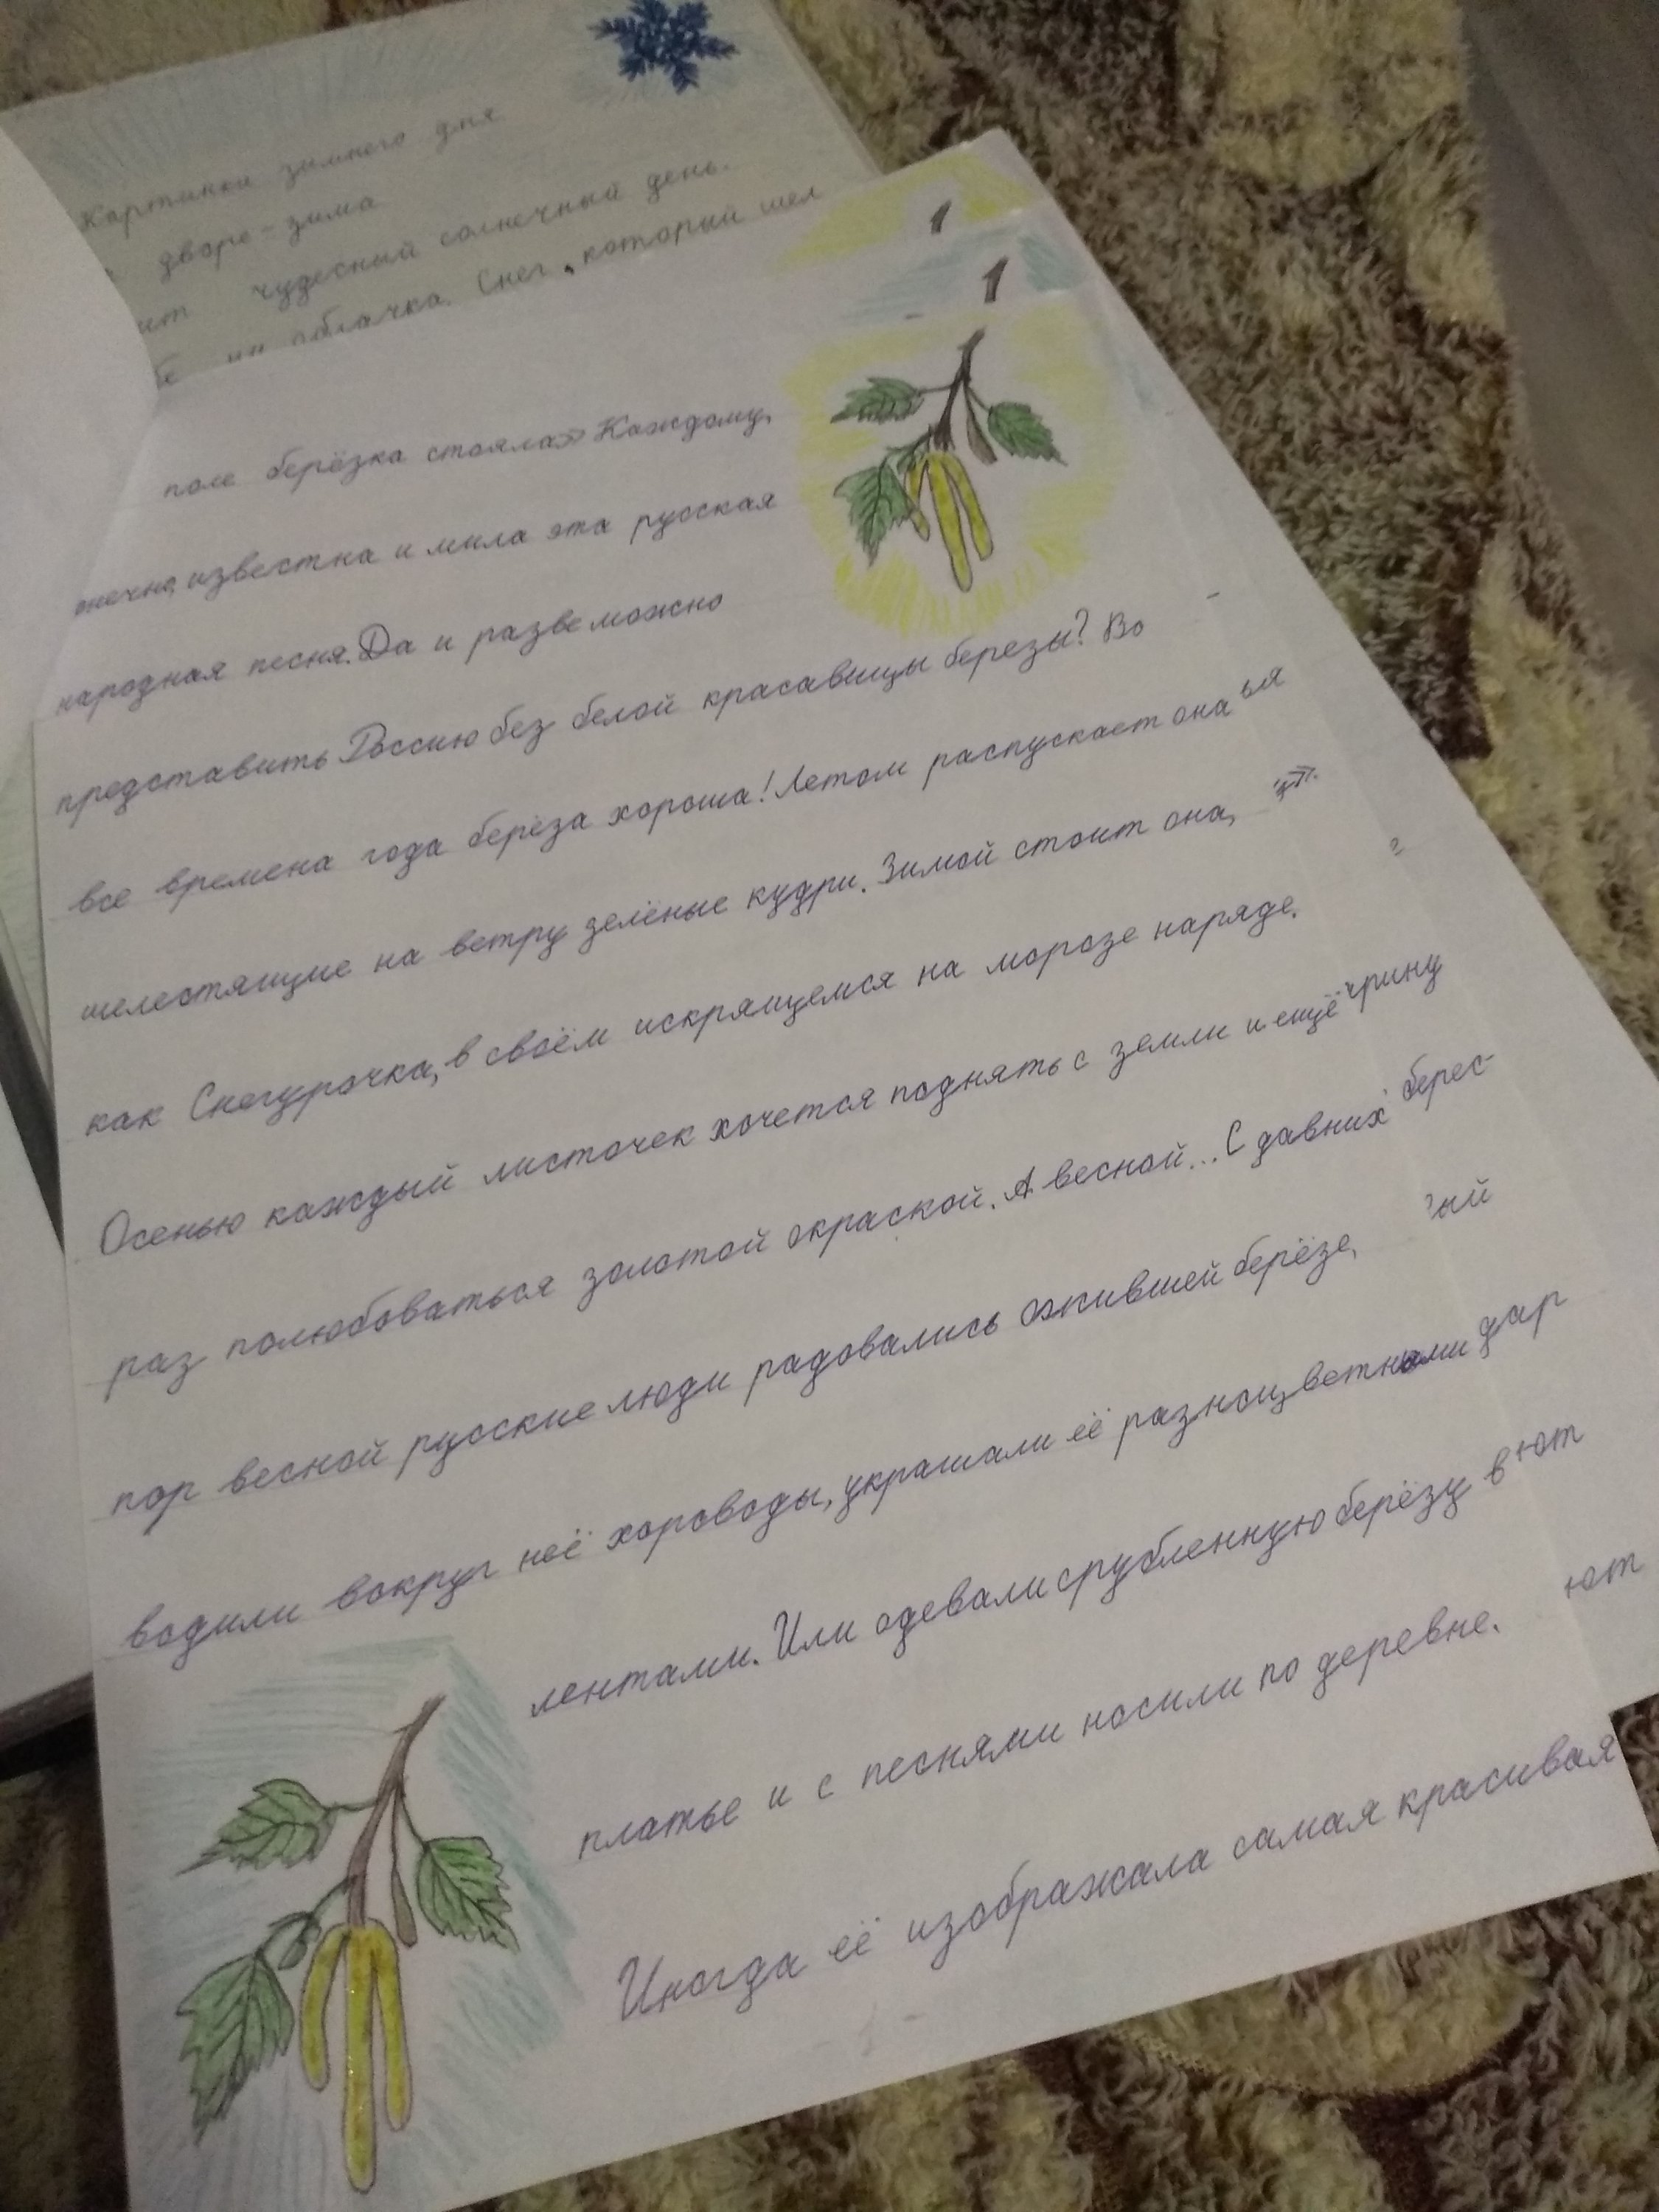 Картинки зимнего дня
дворе - зима
чудесный солнечный день.
ни облачка. Снег, который шел
1
1
поле берёзка стояла» Каждому,
известна и мила эта русская
народная песня. Да и разве можно
представить Россию без белой красавицы березы? Во
все времена года берёза хороша! Летом распускает она
шелестящие на ветру зелёные кудри. Зимой стоит она,
как Снегурочка, в своём искрящемся на морозе наряде.
Осенью каждый листочек хочется поднять с земли и ещё
раз полюбоваться золотой окраской. А весной... С давних
пор весной русские люди радовались ожившей берёзе,
водили вокруг неё хороводы, украшали её разноцветными
лентами. Или одевали срубленную берёзу в
платье и с песнями носили по деревне.
Иногда её изображала самая красивая
ья
чрину
берес-
ый
дар
ют
ют